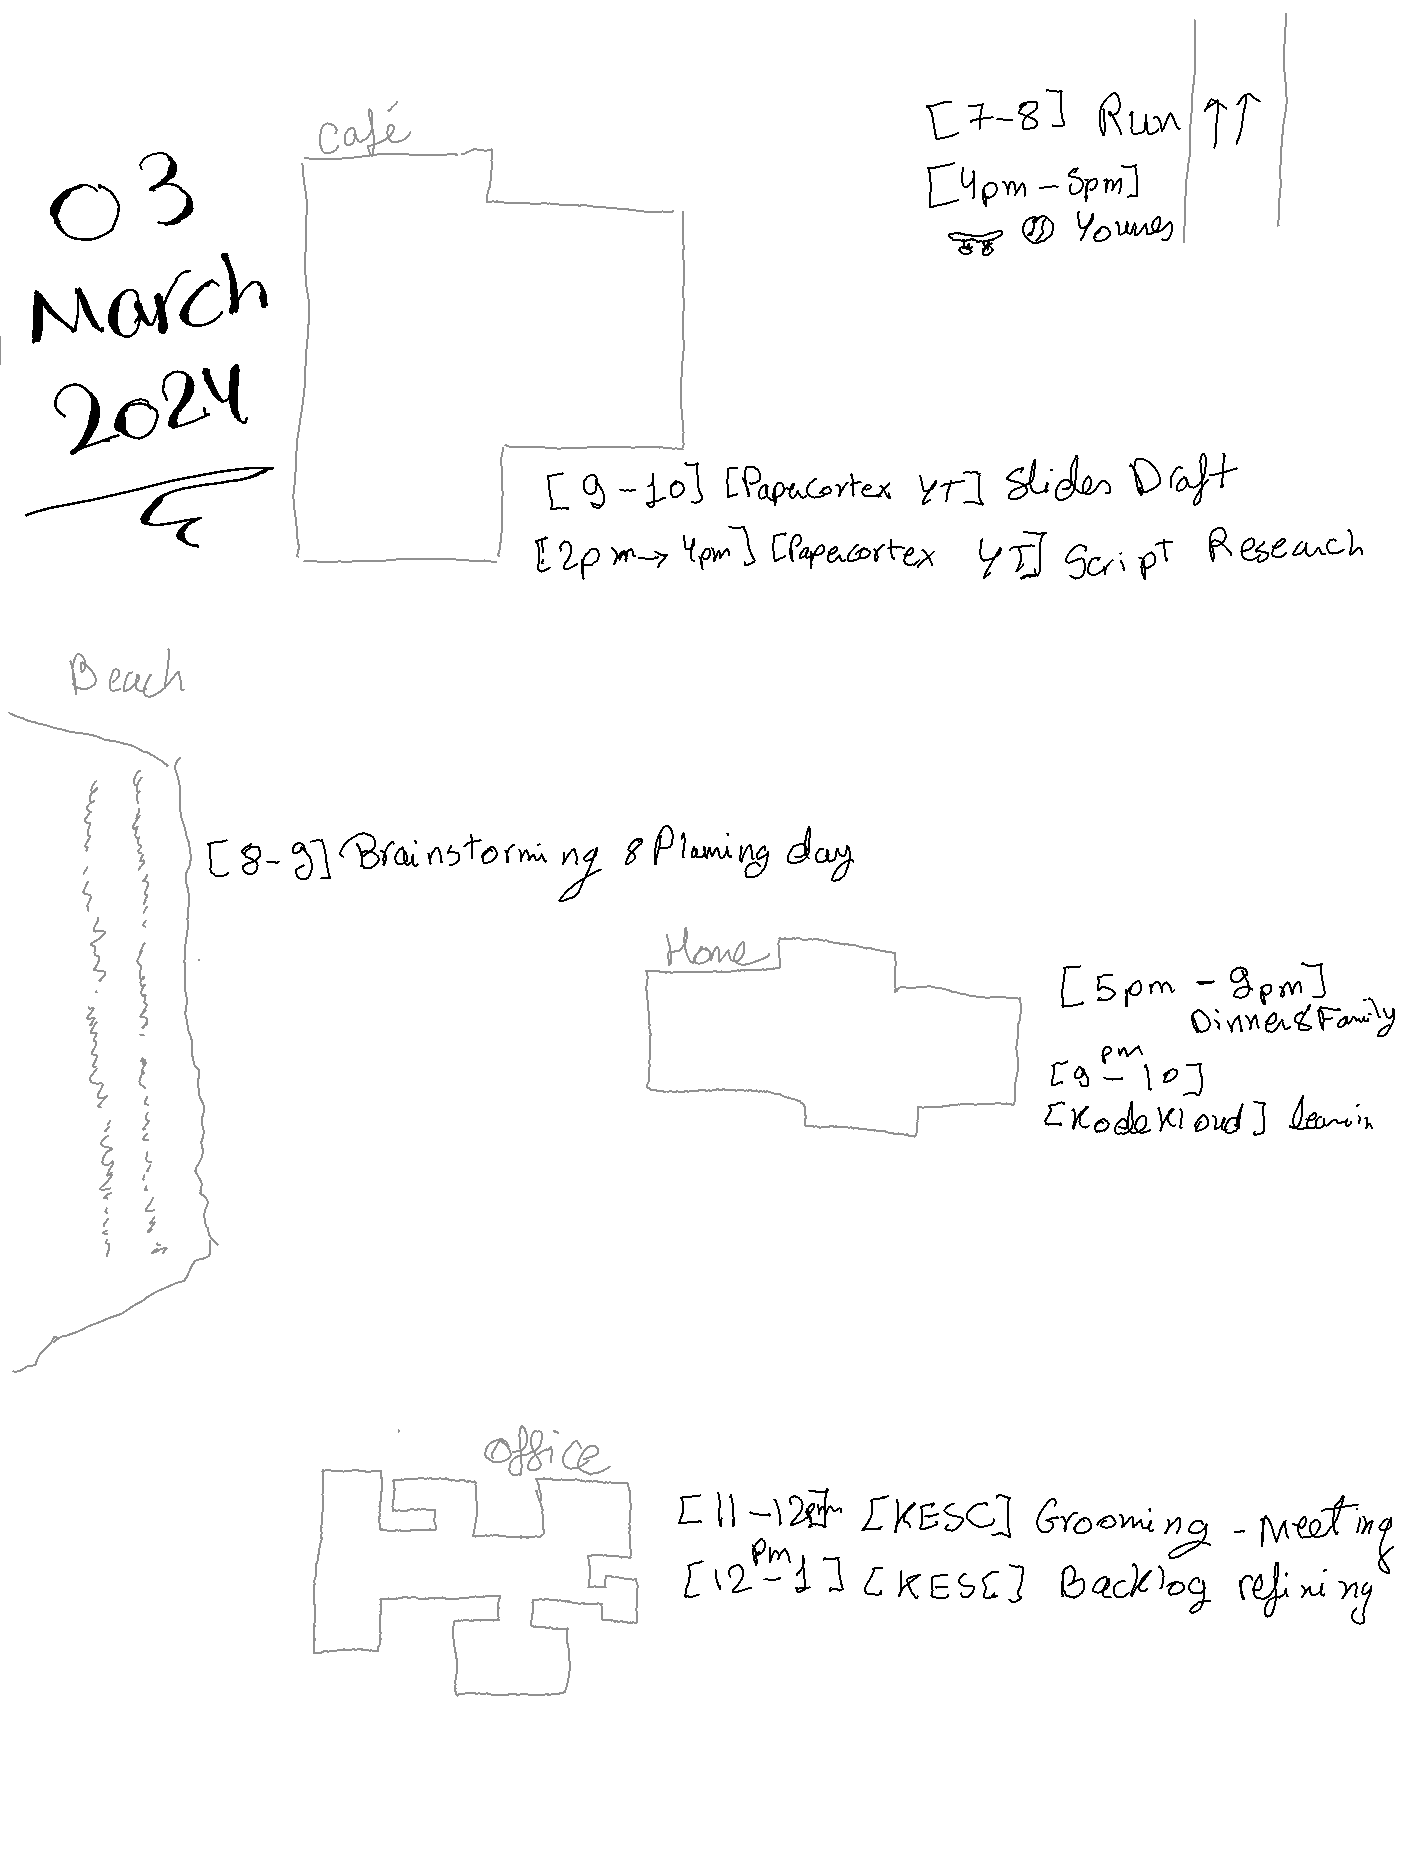 03
March
2024
Café
[7-8] Run
[4pm-5pm]
Younes
[9-10] [Papercortex YT] Slides Draft
[2pm→4pm] [Papercortex YT] Script Research
Beach
[8-9] Brainstorming & Planning day
Home
[5pm - 9pm]
Dinner & Family
[9pm-10]
[KodeKloud] learnin
Office
[11-12pm] [KESC] Grooming - Meeting
[12pm-1] [KESC] Backlog refining